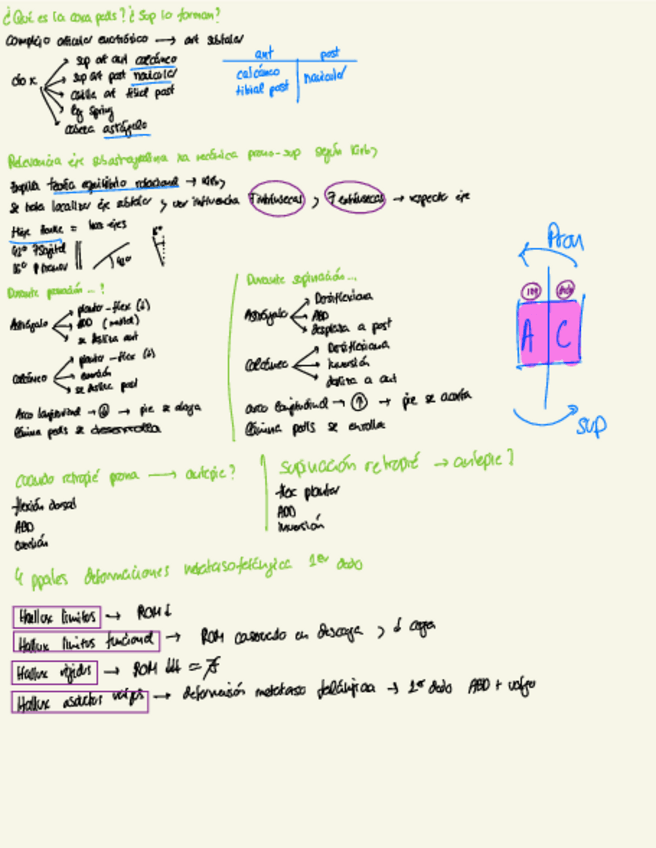 ¿Qué es la coxa pedis? ¿Sup lo forman?
Complejo articular enartrósico → art subtalar
ant post
calcáneo navicular
tibial post
sup art ant calcáneo
sup art post navicular
art tibial post
lig Spring
cabeza astrágalo
Relevancia eje subastragalina en mecánica prono-sup según Kirby
teoría equilibrio rotacional → Kirby
se trata localizar eje subtalar y ver influencia Fintrínsecas y Fextrínsecas → respecto eje
42° Psagital
16° P
42°
16°
Pron
A C
sup
Durante pronación...?
Astrágalo
planto-flex
ADD
se desliza ant
Calcáneo
planto-flex
eversión
se desliza post
Arco longitudinal → ↓ → pie se alarga
lámina pedis se desenrolla
Durante supinación...
Astrágalo
Dorsiflexiona
ABD
desplaza a post
Calcáneo
Dorsiflexiona
inversión
desliza a ant
arco longitudinal → ↑ → pie se acorta
lámina pedis se enrolla
cuando retropié prona → antepie?
flexión dorsal
ABD
eversión
supinación retropié → antepie?
flex plantar
ADD
inversión
4 ppales deformaciones metatarsofalángica 1er dedo
Hallux limitus → ROM↓
Hallux limitus funcional → ROM conservado en descarga y ↓ carga
Hallux rígidus → ROM ↓↓↓ =
Hallux abductus valgus → deformación metatarso falángica → 1er dedo ABD + valgo